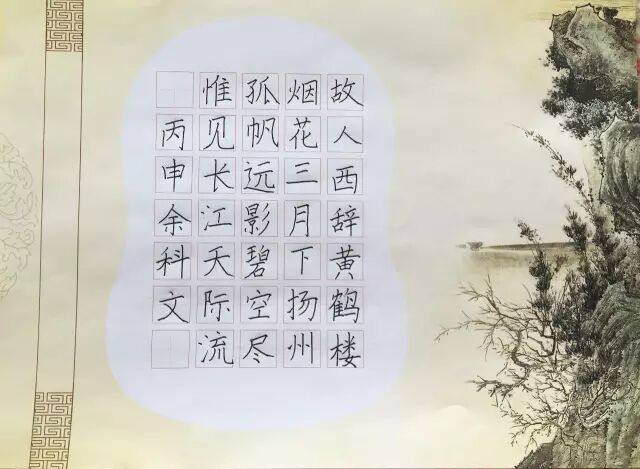 故人西辞黄鹤楼
烟花三月下扬州
孤帆远影碧空尽
惟见长江天际流
丙申余科文